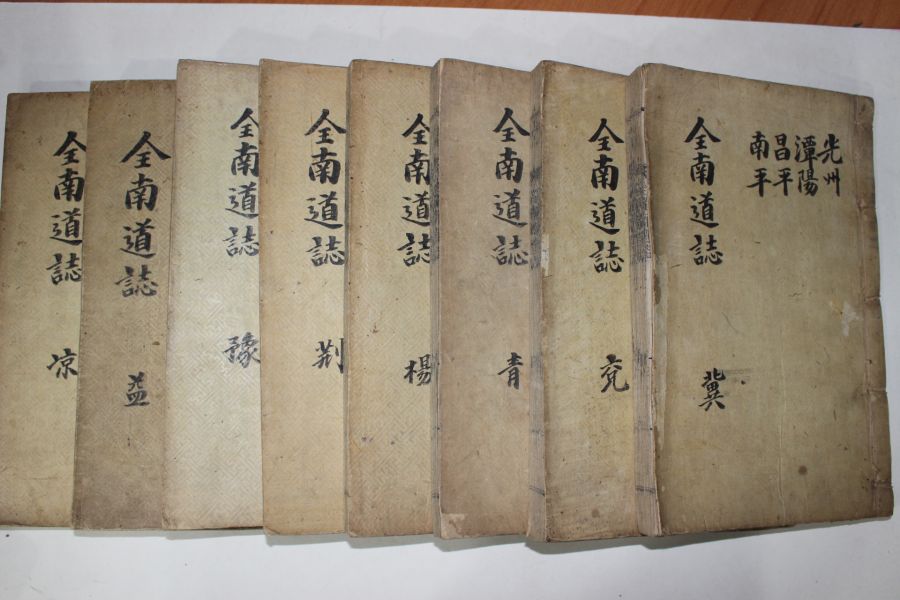 光州
潭陽
昌平
南平
全南道誌
冀
全南道誌
兖
全南道誌
青
全南道誌
楊
全南道誌
荆
全南道誌
豫
全南道誌
益
全南道誌
凉